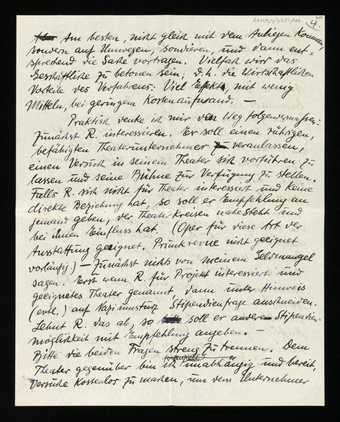 4
Am besten, nicht gleich mit dem Anliegen kommen,
sondern auf Umwegen, sondieren, und dann ent-
sprechend die Sache vortragen. Vielfach wird das
Geschäftliche zu betonen sein, d.h. die wirtschaftlichen
Vorteile des Verfahrens. Viel Effekt mit wenig
Mitteln, bei geringem Kostenaufwand. —
Praktisch denke ich mir den Weg folgendermassen:
Zunächst R. interessieren. Er soll einen rührigen,
befähigten Theaterunternehmer veranlassen,
einen Versuch in seinem Theater sich vorführen zu
lassen und seine Bühne zur Verfügung zu stellen.
Falls R. sich nicht für Theater interessiert und keine
direkte Beziehung hat, so soll er Empfehlung an
jemand geben, der Theaterkreisen nahesteht und
bei ihnen Einfluss hat. (Oper für diese Art der
Ausstattung geeignet. Prunkrevue nicht geeignet
vorläufig.) — Zunächst nichts von meinem Geldmangel
sagen. Erst wenn R. für Projekt interessiert und
geeignetes Theater genannt, dann unter Hinweis
(evtl.) auf Stipendienfrage anschneiden.
Lehnt R. das ab, so soll er andere Stipendien-
möglichkeit mit Empfehlung angeben. —
Bitte die beiden Fragen streng zu trennen. Dem
Theater gegenüber bin ich unabhängig und bereit,
Versuche kostenlos zu machen, um dem Unternehmer